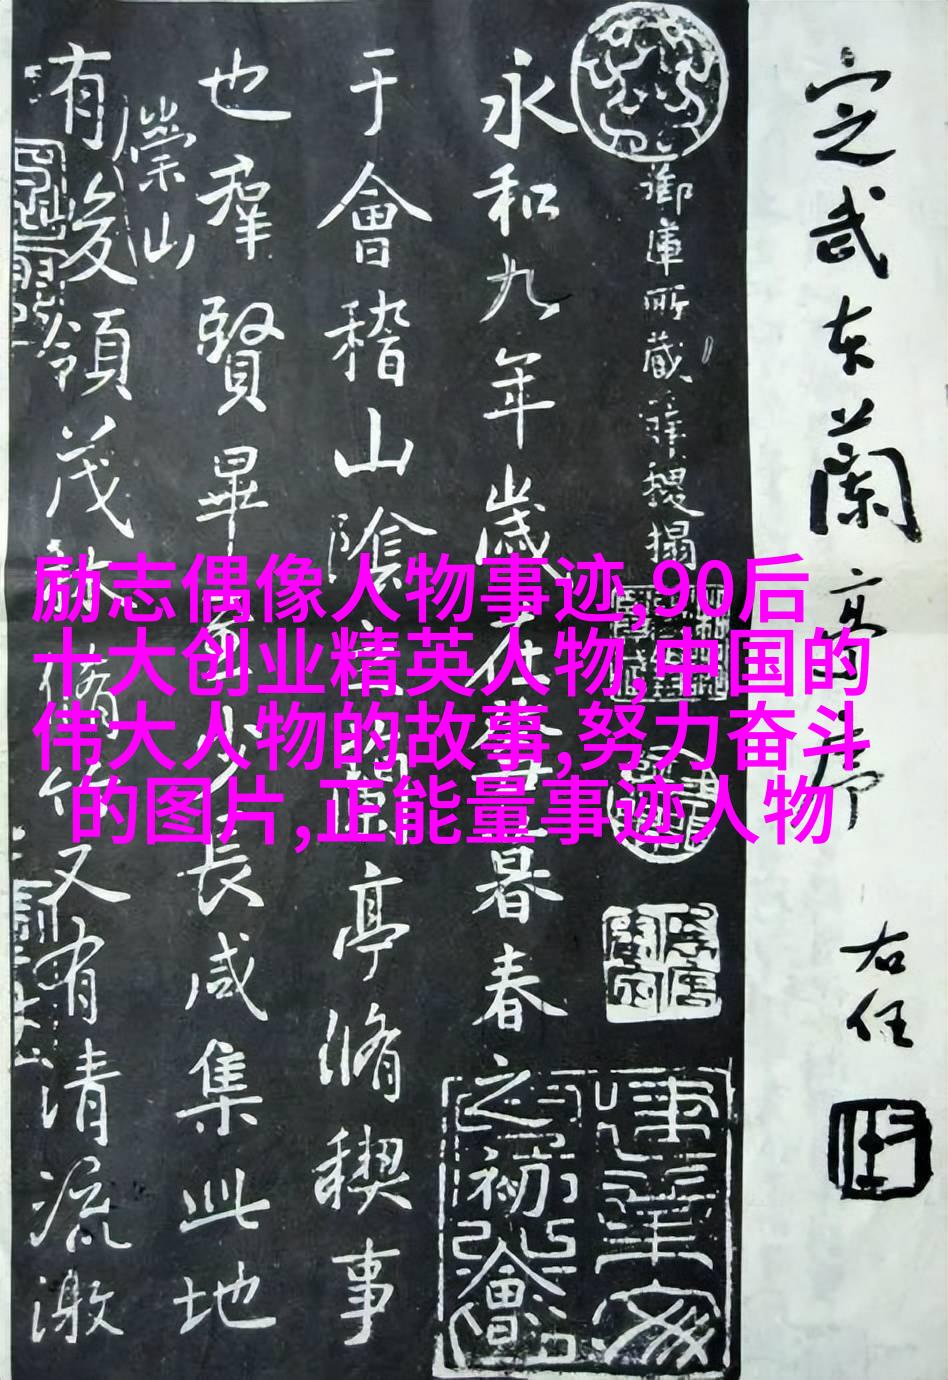 定武本蘭亭序
右任
御庫所藏薛稷搨
永和九年歲在癸丑暮春之初會
于會稽山陰之蘭亭脩稧事
也羣賢畢至少長咸集此地
崇山
有峻領茂林脩竹又有清流激
励志偶像人物事迹,90后
十大创业精英人物,中国的
伟大人物的故事,努力奋斗
的图片,正能量事迹人物